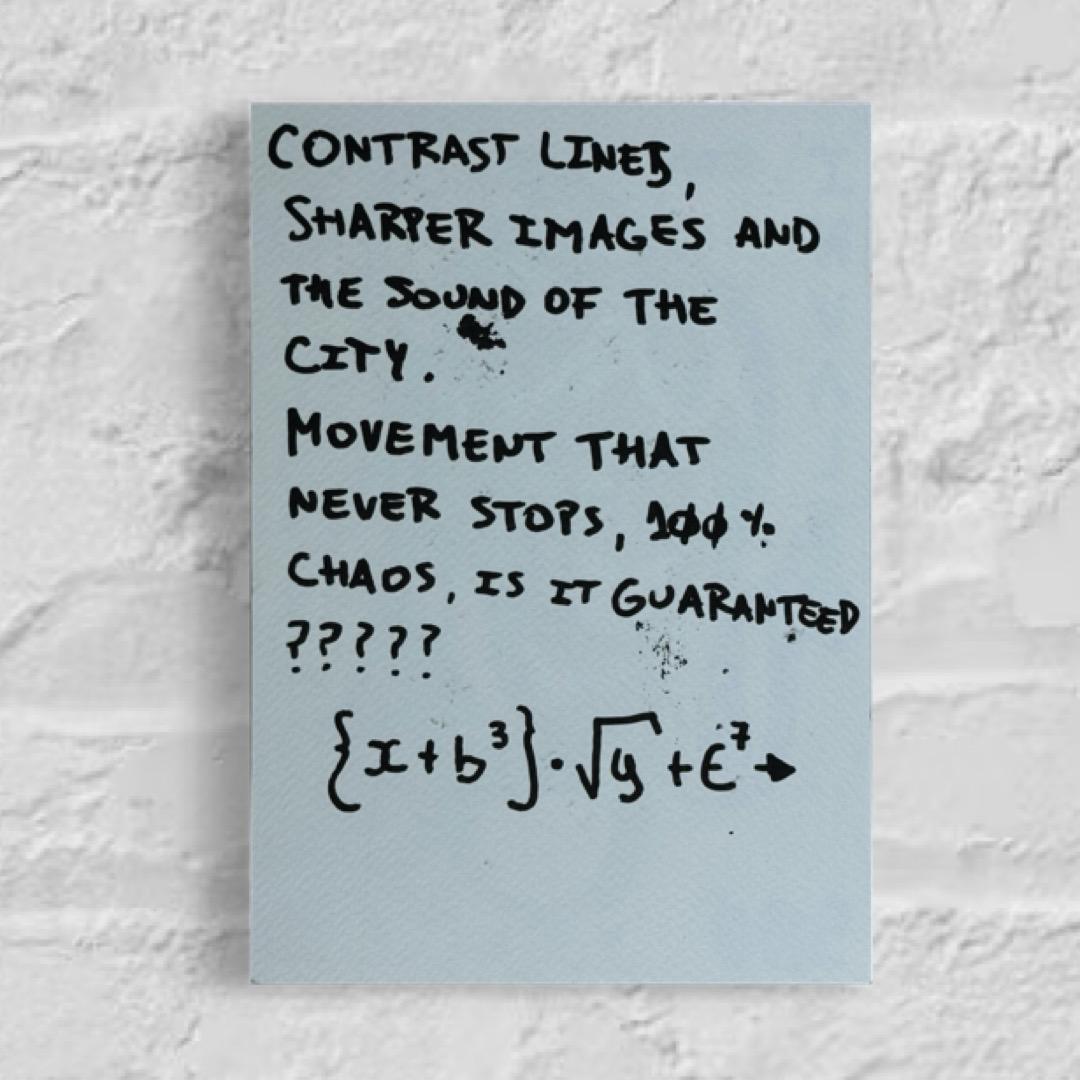 CONTRAST LINES,
SHARPER IMAGES AND
THE SOUND OF THE
CITY.
MOVEMENT THAT
NEVER STOPS, 100%
CHAOS, IS IT GUARANTEED
?????
{x+b³}·√y+є⁷→